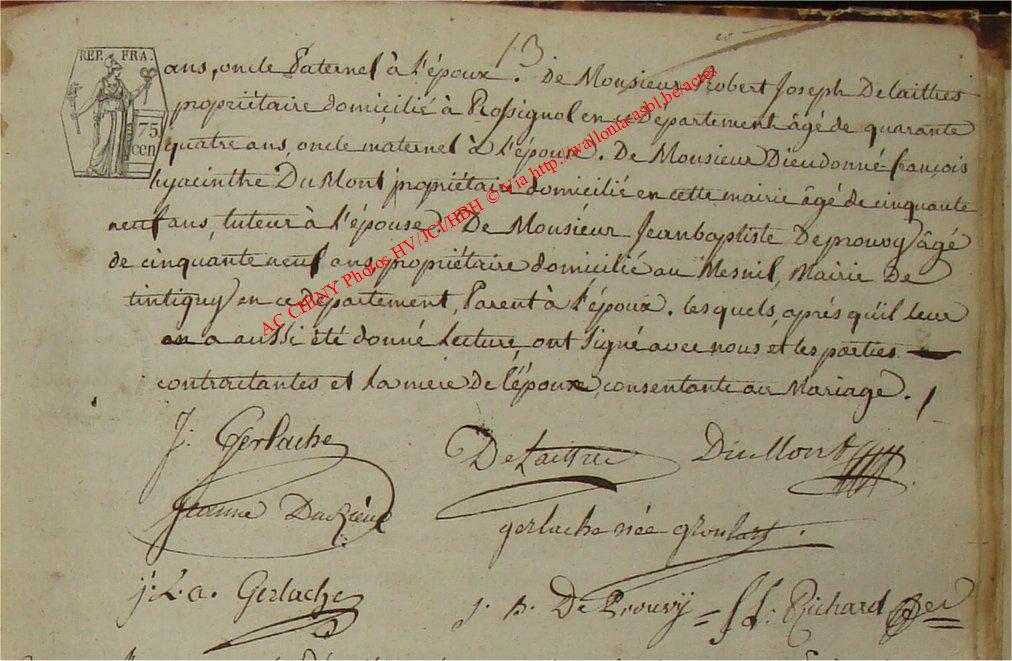 13
REP. FRA.
75
cen
ans, oncle Paternel à l'époux. De Monsieur Robert Joseph Delaittres
propriétaire domicilié à Rossignol en ce Département âgé de quarante
quatre ans, oncle maternel à l'époux. De Monsieur Dieudonné françois
hyacinthe Du Mont propriétaire domicilié en cette mairie âgé de cinquante
neuf ans, tuteur à l'épouse. De Monsieur Jeanbaptiste Deprouvy âgé
de cinquante neuf ans, propriétaire domicilié au Mesnil, Mairie De
tintigny en ce département, Parent à l'époux. les quels, après qu'il leur
en a aussi été donné lecture, ont signé avec nous et les parties
contractantes et la mere de l'époux, consentante au Mariage. /
AC CHINY Photos HV/JCI/HBH © Via http://wallonia-asbl.be/actes
J: Gerlache
DeLaittre
DuMont
Jeanne
gerlache née
j: L. a. Gerlache
j. b. De Prouvÿ =
Richard